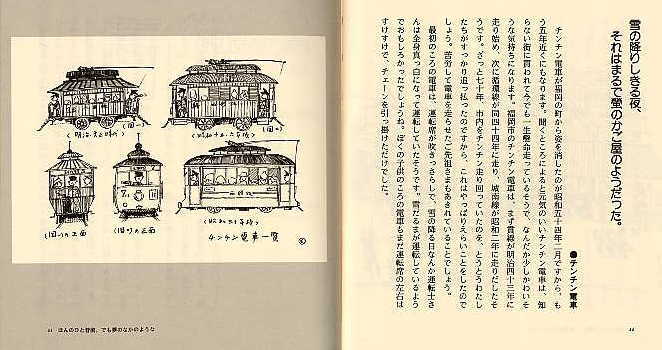 雪の降りしきる夜、
それはまるで螢のかご屋のようだった。
●チンチン電車
チンチン電車が福岡の町から姿を消したのが昭和五十四年二月ですから、も
う五年近くにもなります。聞くところによると元気のいいチンチン電車は、知
らない街に買われて今でも一生懸命走っているそうで、なんだか少しかわいそ
うな気持ちになります。福岡市のチンチン電車は、まず貫線が明治四十三年に
走り始め、次に循環線が同四十四年に走り、城南線が昭和二年に走りだしたそ
うです。ざっと七十年、市内をチンチン走り回っていたのを、とうとうわたし
たちがすっかり追っ払ったのですから、これはやっぱりえらいことをしたので
しょう。苦労して電車を走らせたご先祖さまもあきれていることでしょう。
最初のころの電車は、運転席が吹きっさらしで、雪の降る日なんか運転士さ
んは全身真っ白になって運転していたそうです。雪だるまが運転しているよう
でおもしろかったでしょうね。ぼくの子供のころの電車もまだ運転席の左右は
すけすけで、チェーンを引っ掛けただけでした。
44
の正面
の正面
チンチン電車一覧
45 ほんのひと昔前、でも夢のなかのような